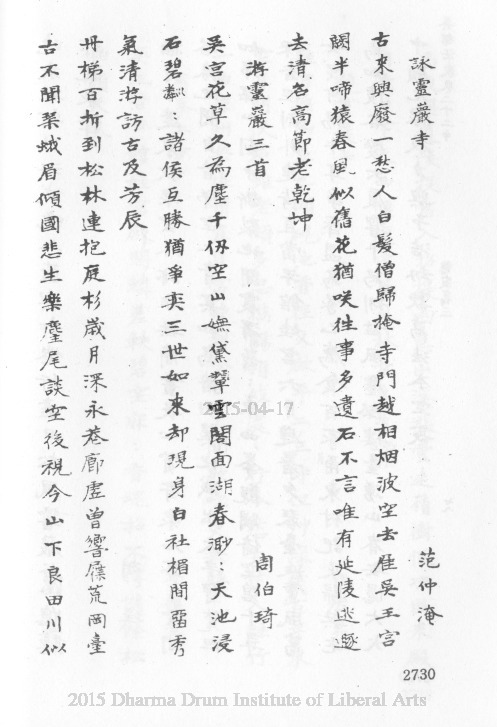 詠靈巖寺
范仲淹
古來興廢一愁人白髮僧歸掩寺門越相烟波空去雁吳王宮
闕半啼猿春風似舊花猶咲往事多遺石不言唯有延陵逃遯
去清名高節老乾坤
游靈巖三首
周伯琦
吳宮花草久為塵千仞空山嫵黛顰雲閣面湖春渺：天池浸
石碧粼：諸侯互勝猶爭奕三世如來却現身白社楣間留秀
氣清游訪古及芳辰
丹梯百折到松林連抱庭杉歲月深永巷廊虛曾響屧荒岡臺
古不聞琴蛾眉傾國悲生樂麈尾談空後視今山下良田川似
2015-04-17
2730
2015 Dharma Drum Institute of Liberal Arts